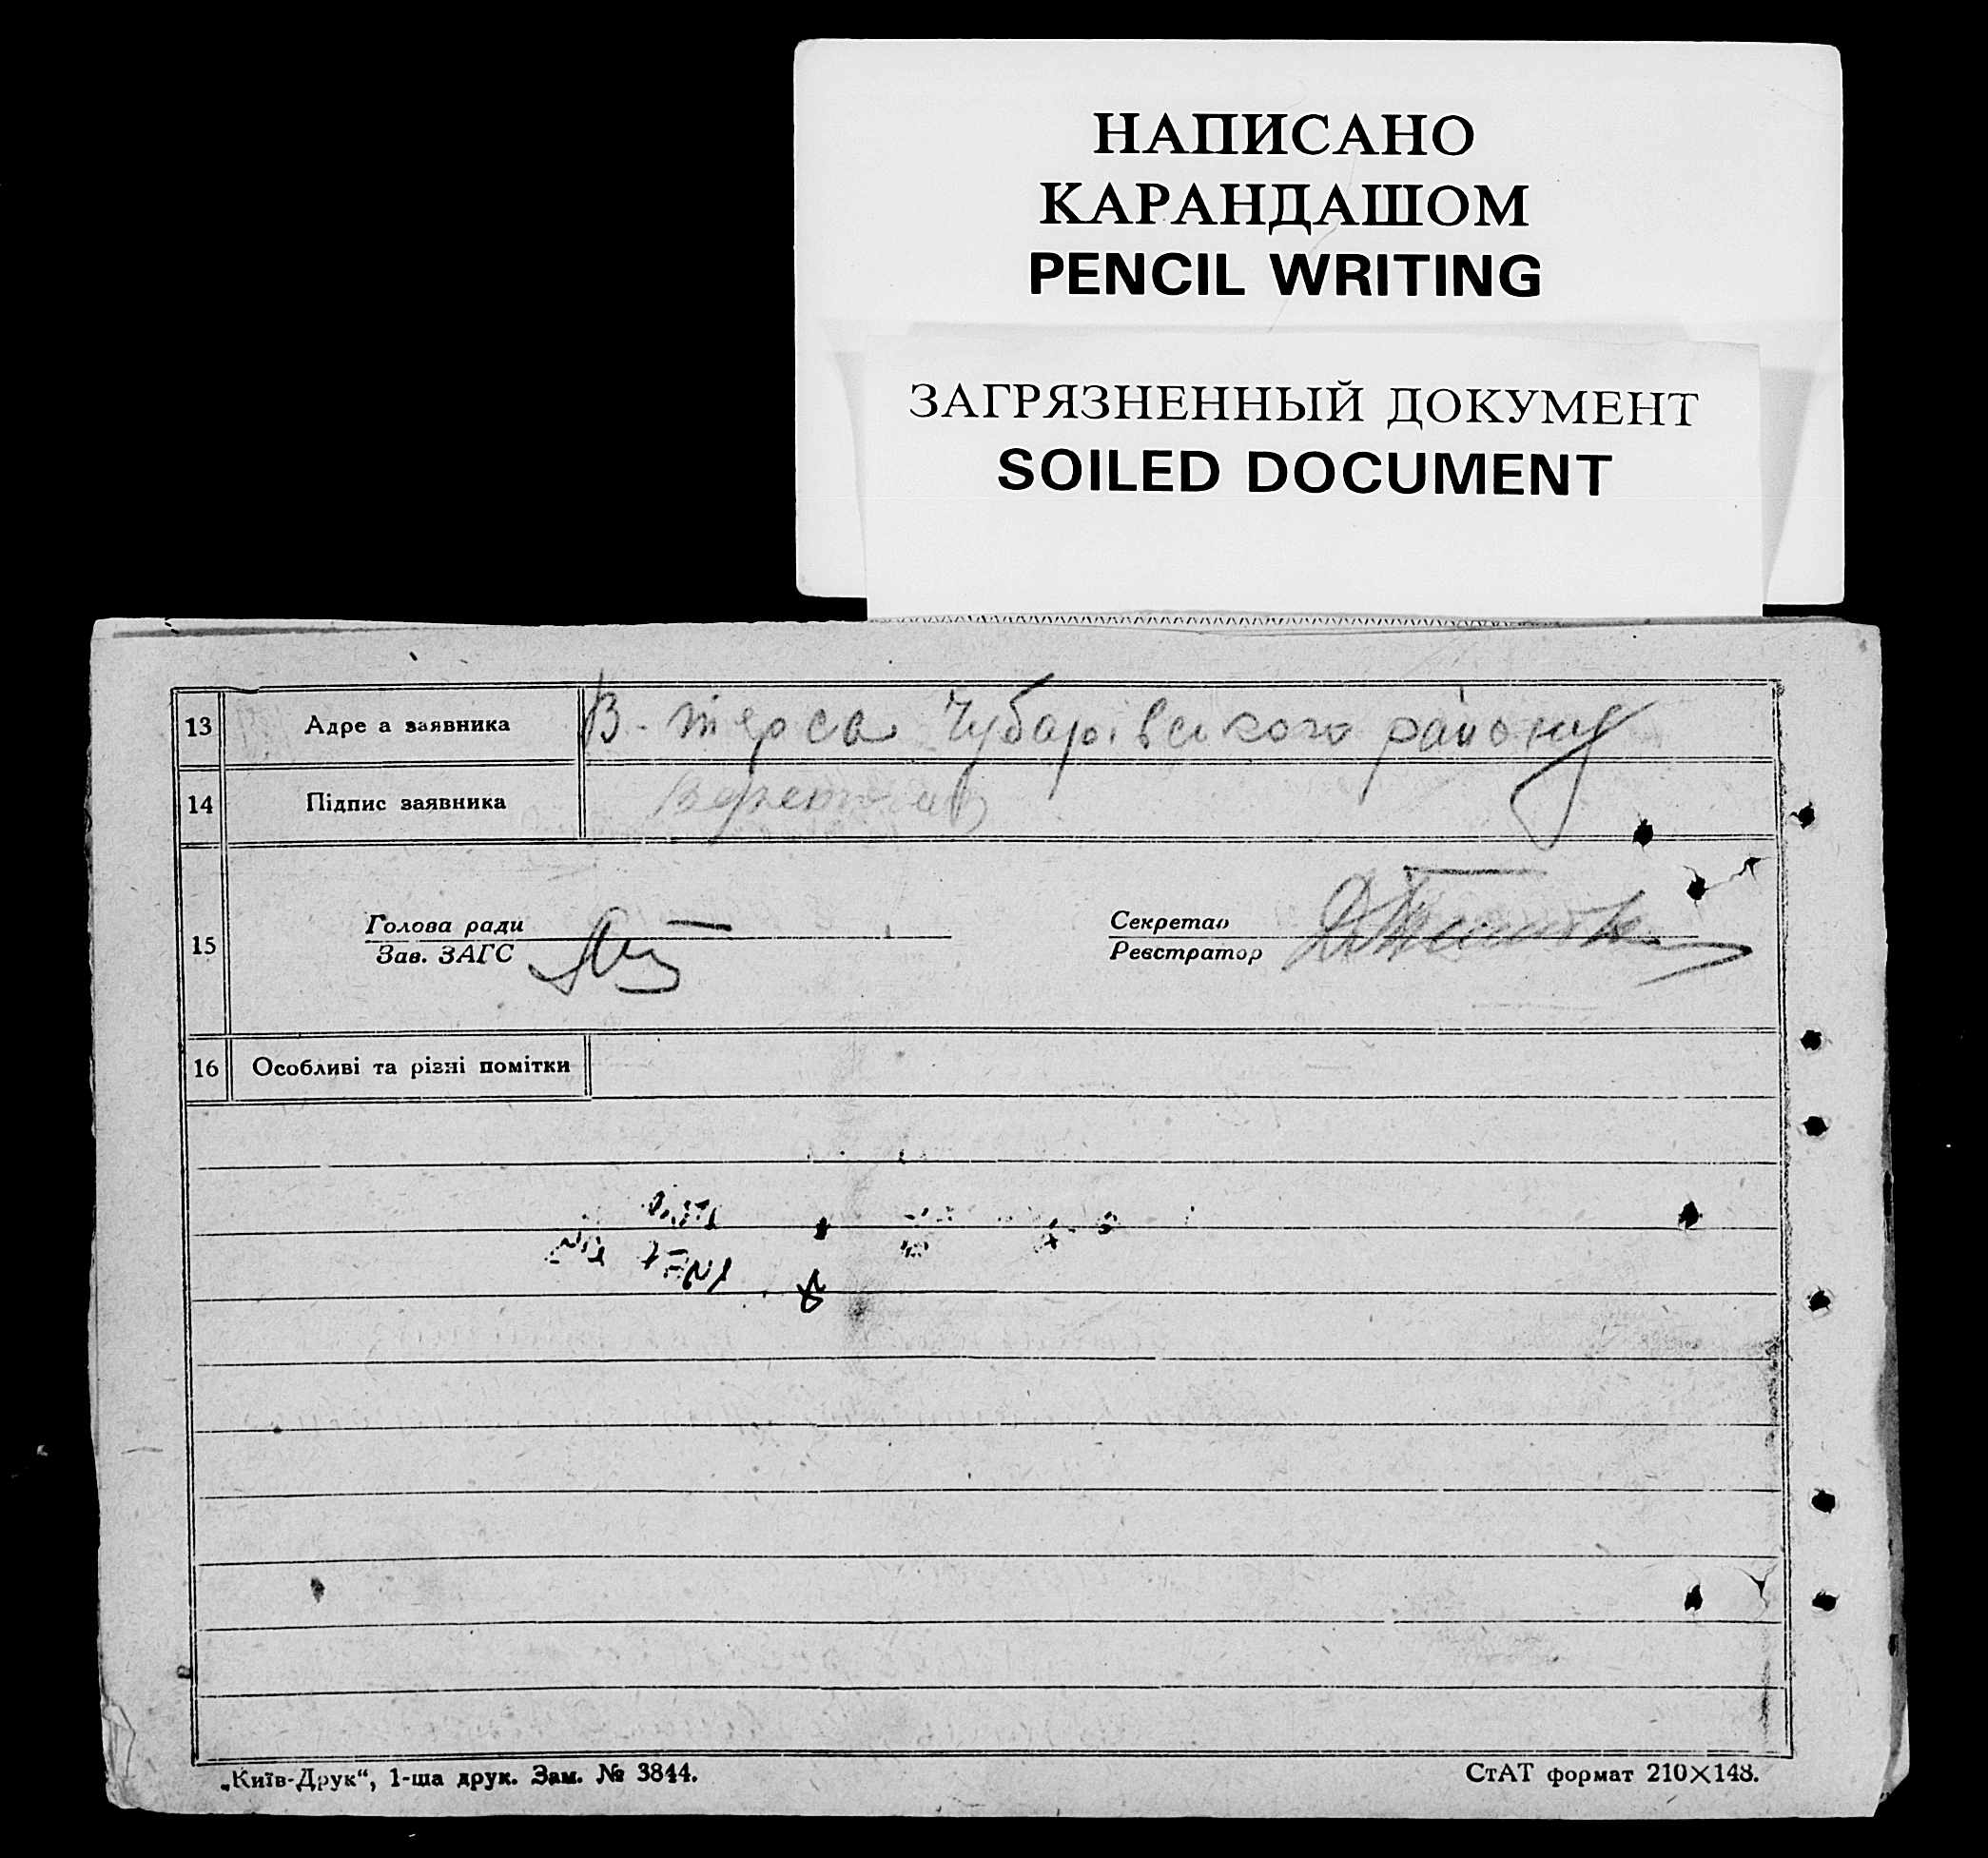 НАПИСАНО
КАРАНДАШОМ
PENCIL WRITING
ЗАГРЯЗНЕННЫЙ ДОКУМЕНТ
SOILED DOCUMENT
13 Адре а заявника В-терса Чубарівського району
14 Підпис заявника
15 Голова ради Секретар
Зав. ЗАГС Реєстратор
16 Особливі та різні помітки
„Київ-Друк“, 1-ша друк. Зам. № 3844. СтАТ формат 210×148.